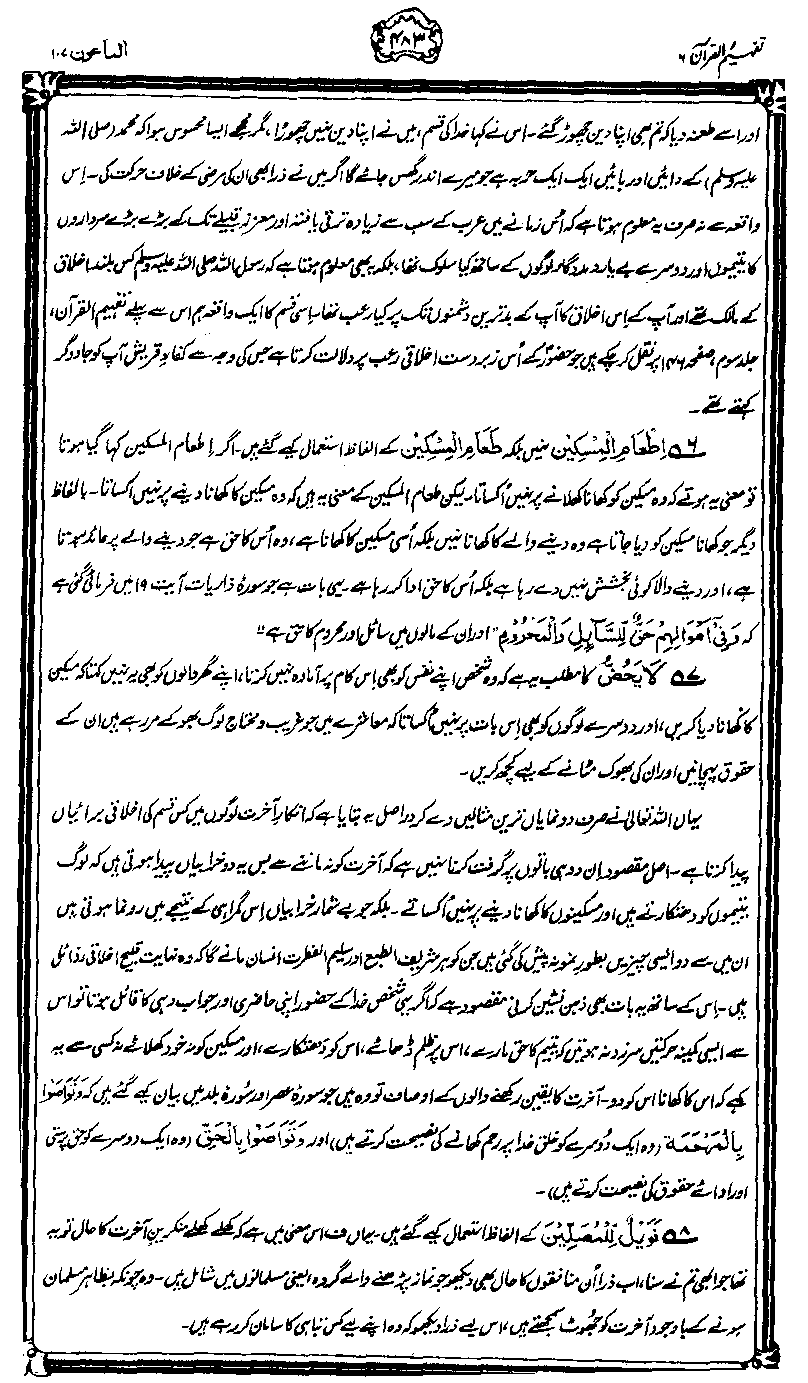 تفہیم القرآن ۶
۴۸۳
الماعون ۱۰۷
اور اسے طعنہ دیا کہ تم بھی اپنا دین چھوڑ گئے۔ اس نے کہا خدا کی قسم، میں نے اپنا دین نہیں چھوڑا، مگر مجھے ایسا محسوس ہوا کہ محمد (صلی اللہ
علیہ وسلم) کے دائیں اور بائیں ایک ایک حربہ ہے جو میرے اندر گھس جائے گا اگر میں نے ذرا بھی ان کی مرضی کے خلاف حرکت کی۔ اِس
واقعہ سے نہ صرف یہ معلوم ہوتا ہے کہ اُس زمانے میں عرب کے سب سے زیادہ ترقی یافتہ اور معزز قبیلے تک کے بڑے بڑے سرداروں
کا یتیموں اور دوسرے بے یار و مددگار لوگوں کے ساتھ کیا سلوک تھا، بلکہ یہ بھی معلوم ہوتا ہے کہ رسول اللہ صلی اللہ علیہ وسلم کس بلند اخلاق
کے مالک تھے اور آپ کے اِس اخلاق کا آپ کے بدترین دشمنوں تک پر کیا رعب تھا۔ اِسی قسم کا ایک واقعہ ہم اس سے پہلے تفہیم القرآن،
جلد سوم، صفحہ ۱۴۶ پر نقل کر چکے ہیں جو حضورؐ کے اُس زبردست اخلاقی رعب پر دلالت کرتا ہے جس کی وجہ سے کفارِ قریش آپ کو جادوگر
کہتے تھے۔
۵۶ اِطْعَامِ الْمِسْكِيْنِ نہیں بلکہ طَعَامِ الْمِسْكِيْنِ کے الفاظ استعمال کیے گئے ہیں۔ اگر اطعام المسکین کہا گیا ہوتا
تو معنی یہ ہوتے کہ وہ مسکین کو کھانا کھلانے پر نہیں اُکساتا۔ لیکن طعام المسکین کے معنی یہ ہیں کہ وہ مسکین کا کھانا دینے پر نہیں اکساتا۔ بالفاظ
دیگر جو کھانا مسکین کو دیا جاتا ہے وہ دینے والے کا کھانا نہیں بلکہ اُسی مسکین کا کھانا ہے، وہ اُس کا حق ہے جو دینے والے پر عائد ہوتا
ہے، اور دینے والا کوئی بخشش نہیں دے رہا ہے بلکہ اُس کا حق ادا کر رہا ہے۔ یہی بات ہے جو سورۂ ذاریات آیت ۱۹ میں فرمائی گئی ہے
کہ وَفِيْ اَمْوَالِهِمْ حَقٌّ لِّلسَّآئِلِ وَالْمَحْرُوْمِ "اور ان کے مالوں میں سائل اور محروم کا حق ہے"
۵۷ لَا يَحُضُّ کا مطلب یہ ہے کہ وہ شخص اپنے نفس کو بھی اِس کام پر آمادہ نہیں کرتا، اپنے گھر والوں کو بھی یہ نہیں کہتا کہ مسکین
کا کھانا دیا کریں، اور دوسرے لوگوں کو بھی اِس بات پر نہیں اُکساتا کہ معاشرے میں جو غریب و محتاج لوگ بھوکے مر رہے ہیں ان کے
حقوق پہچانیں اور ان کی بھوک مٹانے کے لیے کچھ کریں۔
یہاں اللہ تعالیٰ نے صرف دو نمایاں ترین مثالیں دے کر دراصل یہ بتایا ہے کہ انکارِ آخرت لوگوں میں کس قسم کی اخلاقی برائیاں
پیدا کرتا ہے۔ اصل مقصود اِن دو ہی باتوں پر گرفت کرنا نہیں ہے کہ آخرت کو نہ ماننے سے بس یہ دو خرابیاں پیدا ہوتی ہیں کہ لوگ
یتیموں کو دھتکارتے ہیں اور مسکینوں کا کھانا دینے پر نہیں اُکساتے۔ بلکہ جو بے شمار خرابیاں اِس گمراہی کے نتیجے میں رونما ہوتی ہیں
ان میں سے دو ایسی چیزیں بطور نمونہ پیش کی گئی ہیں جن کو ہر شریف الطبع اور سلیم الفطرت انسان مانے گا کہ وہ نہایت قبیح اخلاقی رذائل
ہیں۔ اِس کے ساتھ یہ بات بھی ذہن نشین کرنی مقصود ہے کہ اگر یہی شخص خدا کے حضور اپنی حاضری اور جواب دہی کا قائل ہوتا تو اس
سے ایسی کمینہ حرکتیں سرزد نہ ہوتیں کہ یتیم کا حق مارے، اس پر ظلم ڈھائے، اس کو دھتکارے، اور مسکین کو نہ خود کھلائے نہ کسی سے یہ
کہے کہ اس کا کھانا اس کو دو۔ آخرت کا یقین رکھنے والوں کے اوصاف تو وہ ہیں جو سورۂ عصر اور سورۂ بلد میں بیان کیے گئے ہیں کہ وَتَوَاصَوْا
بِالْمَرْحَمَةِ (وہ ایک دوسرے کو خلقِ خدا پر رحم کھانے کی نصیحت کرتے ہیں) اور وَتَوَاصَوْا بِالْحَقِّ (وہ ایک دوسرے کو حق پرستی
اور ادائے حقوق کی نصیحت کرتے ہیں)۔
۵۸ فَوَيْلٌ لِّلْمُصَلِّيْنَ کے الفاظ استعمال کیے گئے ہیں۔ یہاں ف اس معنی میں ہے کہ کھلے کھلے منکرینِ آخرت کا حال تو یہ
تھا جو ابھی تم نے سنا، اب ذرا اُن منافقوں کا حال بھی دیکھو جو نماز پڑھنے والے گروہ، یعنی مسلمانوں میں شامل ہیں۔ وہ چونکہ بظاہر مسلمان
ہونے کے باوجود آخرت کو جھوٹ سمجھتے ہیں، اس لیے ذرا دیکھو کہ وہ اپنے لیے کس تباہی کا سامان کر رہے ہیں۔